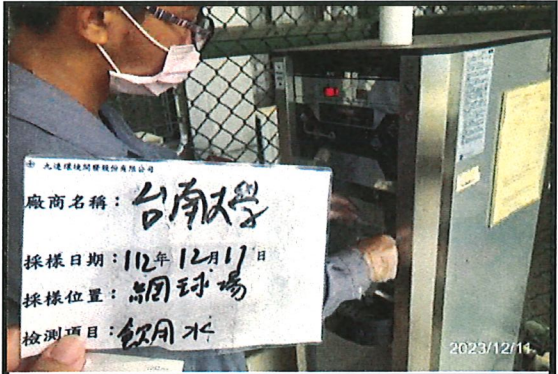 九連環境開發股份有限公司
廠商名稱：台南大學
採樣日期：112年12月11日
採樣位置：網球場
檢測項目：飲用水
2023/12/11